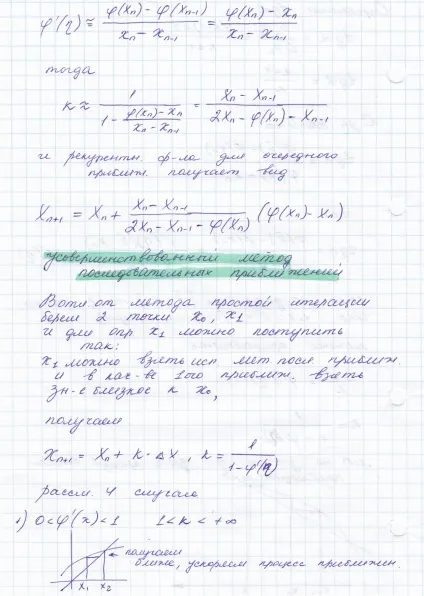 φ'(η) ≈ (φ(xₙ) - φ(xₙ₋₁)) / (xₙ - xₙ₋₁) = (φ(xₙ) - xₙ) / (xₙ - xₙ₋₁)
тогда
k ≈ 1 / (1 - (φ(xₙ) - xₙ) / (xₙ - xₙ₋₁)) = (xₙ - xₙ₋₁) / (2xₙ - φ(xₙ) - xₙ₋₁)
и рекурентн. ф-ла для очередного
приближ. получает вид
xₙ₊₁ = xₙ + (xₙ - xₙ₋₁) / (2xₙ - xₙ₋₁ - φ(xₙ)) (φ(xₙ) - xₙ)
усовершнствованный метод
последовательных приближений
В отл. от метода простой итерации
берем 2 точки x₀, x₁
и для опр. x₁ можно поступить
так:
x₁ можно взять исп. мет. посл. приближ.
и в кач-ве 1ого приближ. взять
зн-е близкое к x₀,
получаем
xₙ₊₁ = xₙ + k · Δx, k = 1 / (1 - φ'(η))
рассм. 4 случая
1) 0 < φ'(x) < 1 1 < k < +∞
получаем
ближе, ускоряем процесс приближен.
x₁ x₂